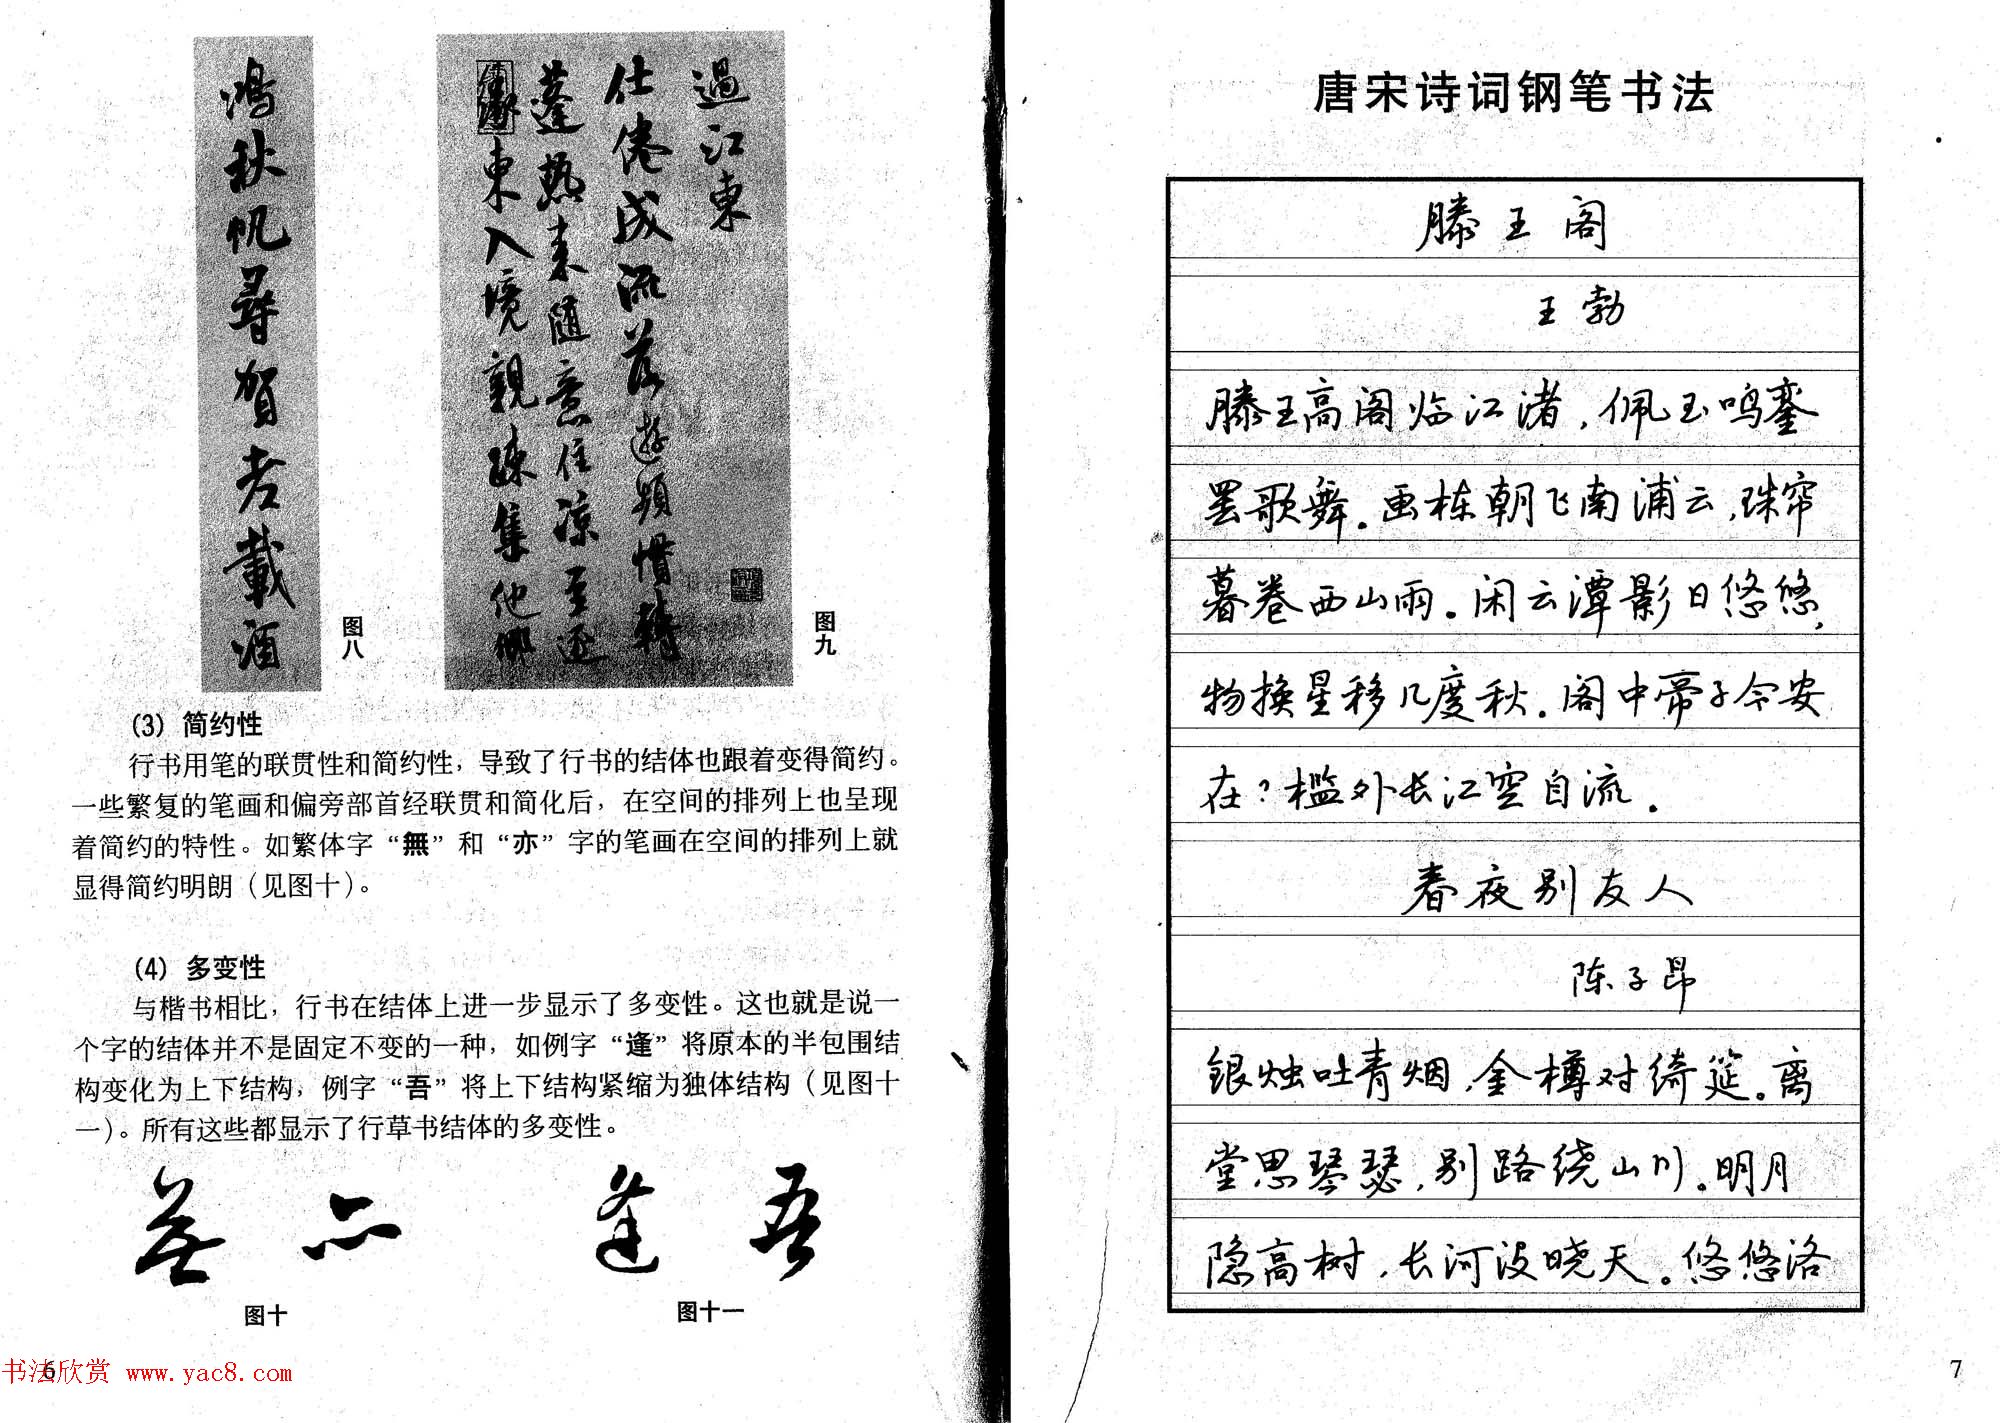 鴻秋帆尋賀老載酒
图八
過江東
仕倦成流落遊頻慣轉
蓬熱來隨意住涼至逐
東入境親疎集他鄉
图九
(3) 简约性
行书用笔的联贯性和简约性，导致了行书的结体也跟着变得简约。
一些繁复的笔画和偏旁部首经联贯和简化后，在空间的排列上也呈现
着简约的特性。如繁体字“無”和“亦”字的笔画在空间的排列上就
显得简约明朗（见图十）。
(4) 多变性
与楷书相比，行书在结体上进一步显示了多变性。这也就是说一
个字的结体并不是固定不变的一种，如例字“逢”将原本的半包围结
构变化为上下结构，例字“吾”将上下结构紧缩为独体结构（见图十
一）。所有这些都显示了行草书结体的多变性。
無 亦 逢 吾
图十
图十一
6
书法欣赏 www.yac8.com
唐宋诗词钢笔书法
滕王阁
王勃
滕王高阁临江渚，佩玉鸣銮
罢歌舞。画栋朝飞南浦云，珠帘
暮卷西山雨。闲云潭影日悠悠，
物换星移几度秋。阁中帝子今安
在？槛外长江空自流。
春夜别友人
陈子昂
银烛吐青烟，金樽对绮筵。离
堂思琴瑟，别路绕山川。明月
隐高树，长河没晓天。悠悠洛
7